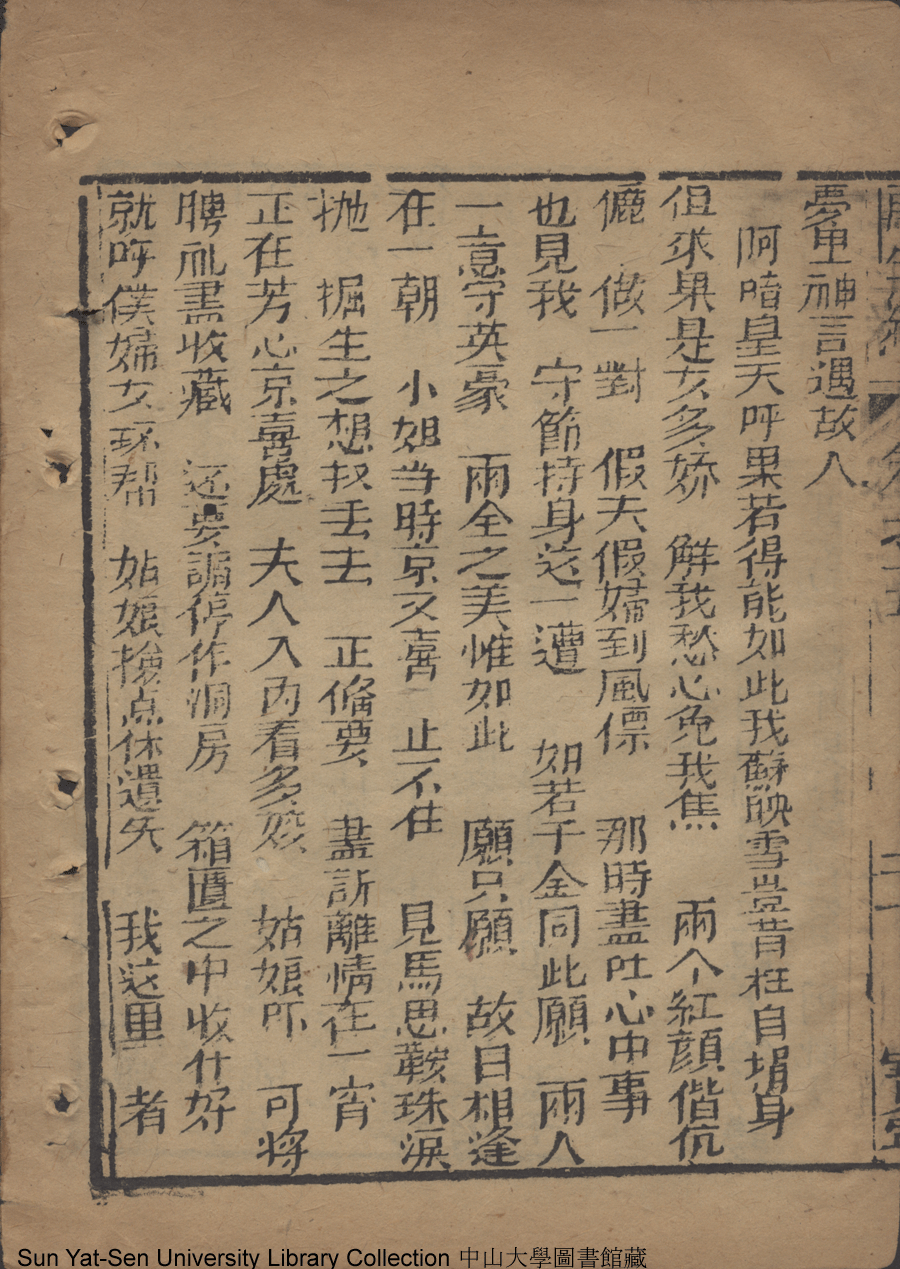 夢里神言遇故人
阿唷皇天呀果若得能如此我蘇映雪豈昔枉自捐身
但求果是女多娇　解我愁心免我焦　兩个紅顔偕伉
儷　做一對　假夫假婦到風僄　那時盡吐心中事
也見我　守節持身这一遭　如若千金同此願　兩人
一意守英豪　兩全之美惟如此　願只願　故日相逢
在一朝　小姐当時京又喜　止不住　見馬思鞍珠淚
抛　掘生之想权丢去　正脩要　盡訴離情在一宵
正在芳心京喜處　夫人入內看多姣　姑娘吓　可将
聘礼盡收藏　还要諧停作洞房　箱匱之中收什好
就呼僕婦女环帮　姑娘撿点休遺失　我这里　者
Sun Yat-Sen University Library Collection 中山大學圖書館藏